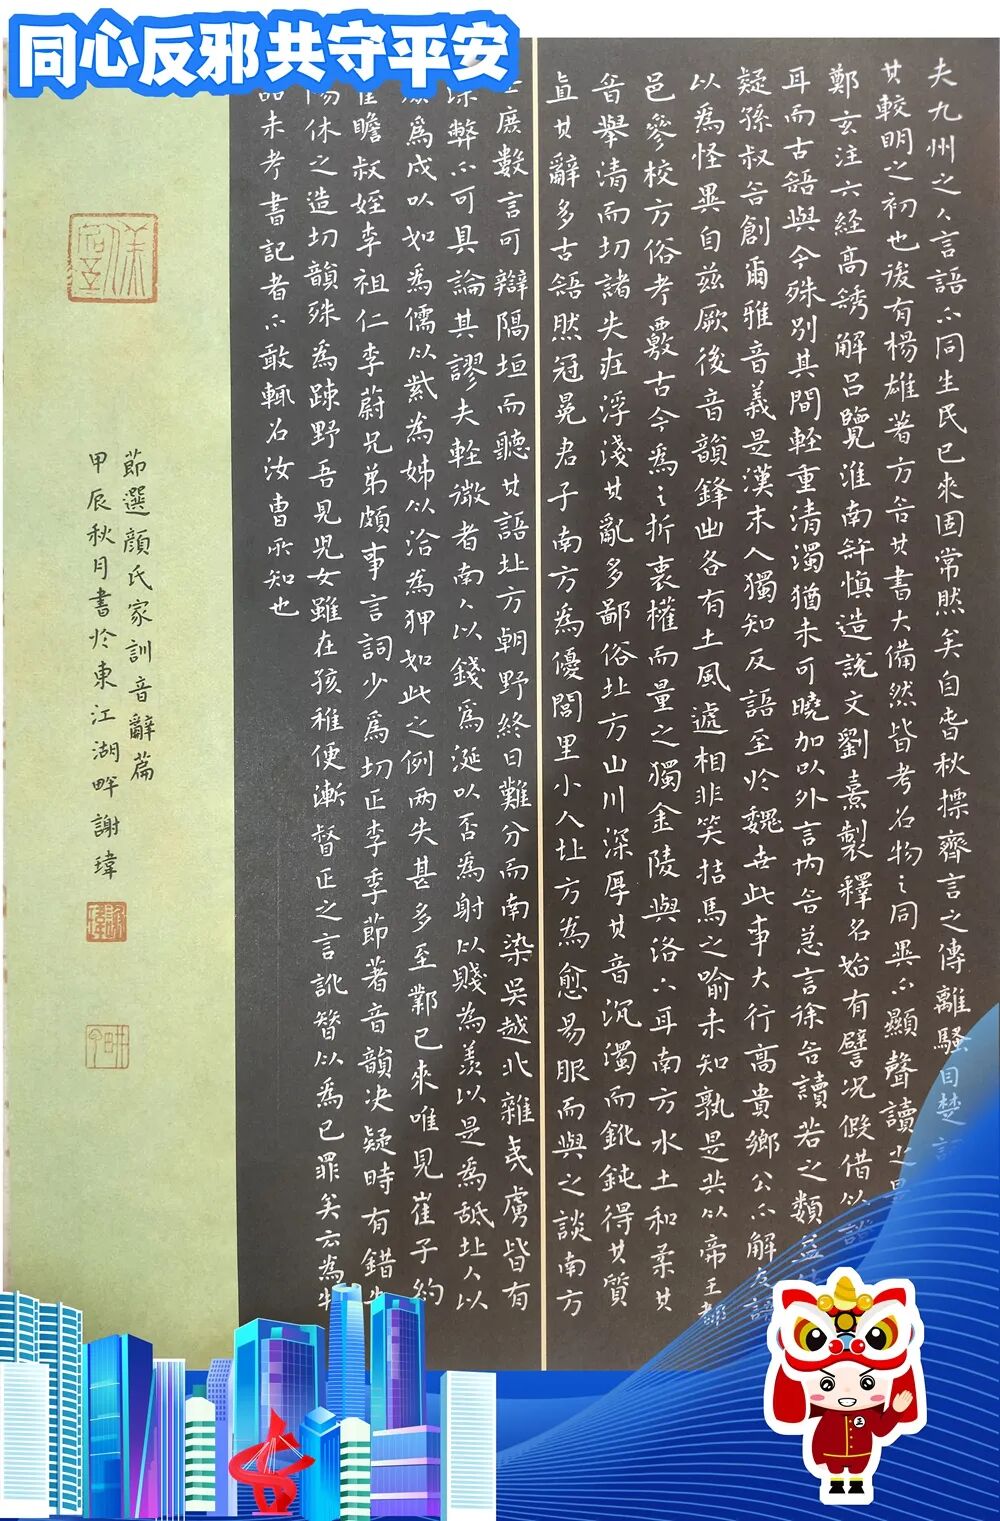 同心反邪共守平安
夫九州之人言語不同生民已來固常然矣自春秋摽齊言之傳離騷目楚詞
其較明之初也後有楊雄著方言其書大備然皆考名物之同異不顯聲讀之是
鄭玄注六經高誘解呂覽淮南許慎造說文劉熹製釋名始有譬況假借以證
耳而古語與今殊別其間輕重清濁猶未可曉加以外言內言急言徐言讀若之類益使
疑孫叔言創爾雅音義是漢末人獨知反語至於魏世此事大行高貴鄉公不解反語
以為怪異自茲厥後音韻鋒出各有土風遞相非笑指馬之喻未知孰是共以帝王都
邑參校方俗考覈古今為之折衷榷而量之獨金陵與洛下耳南方水土和柔其
音舉清而切諸失在浮淺其亂多鄙俗北方山川深厚其音沉濁而鈋鈍得其質
直其辭多古語然冠冕君子南方為優閭里小人北方為愈易服而與之談南方
士庶數言可辯隔垣而聽其語北方朝野終日難分而南染吳越北雜夷虜皆有
深弊不可具論其謬失輕微者南人以錢為涎以石為射以賤為羨以是為舐北人以
庶為戍以如為儒以紫為姊以洽為狎如此之例兩失甚多至鄴已來唯見崔子約
崔瞻叔姪李祖仁李蔚兄弟頗事言詞少為切正李季節著音韻決疑時有錯失
陽休之造切韻殊為疎野吾見兒女雖在孩稚便漸督正之一言訛替以為己罪矣云為
品未考書記者不敢輒名汝曹所知也
節選顏氏家訓音辭篇
甲辰秋月書於東江湖畔謝瑋